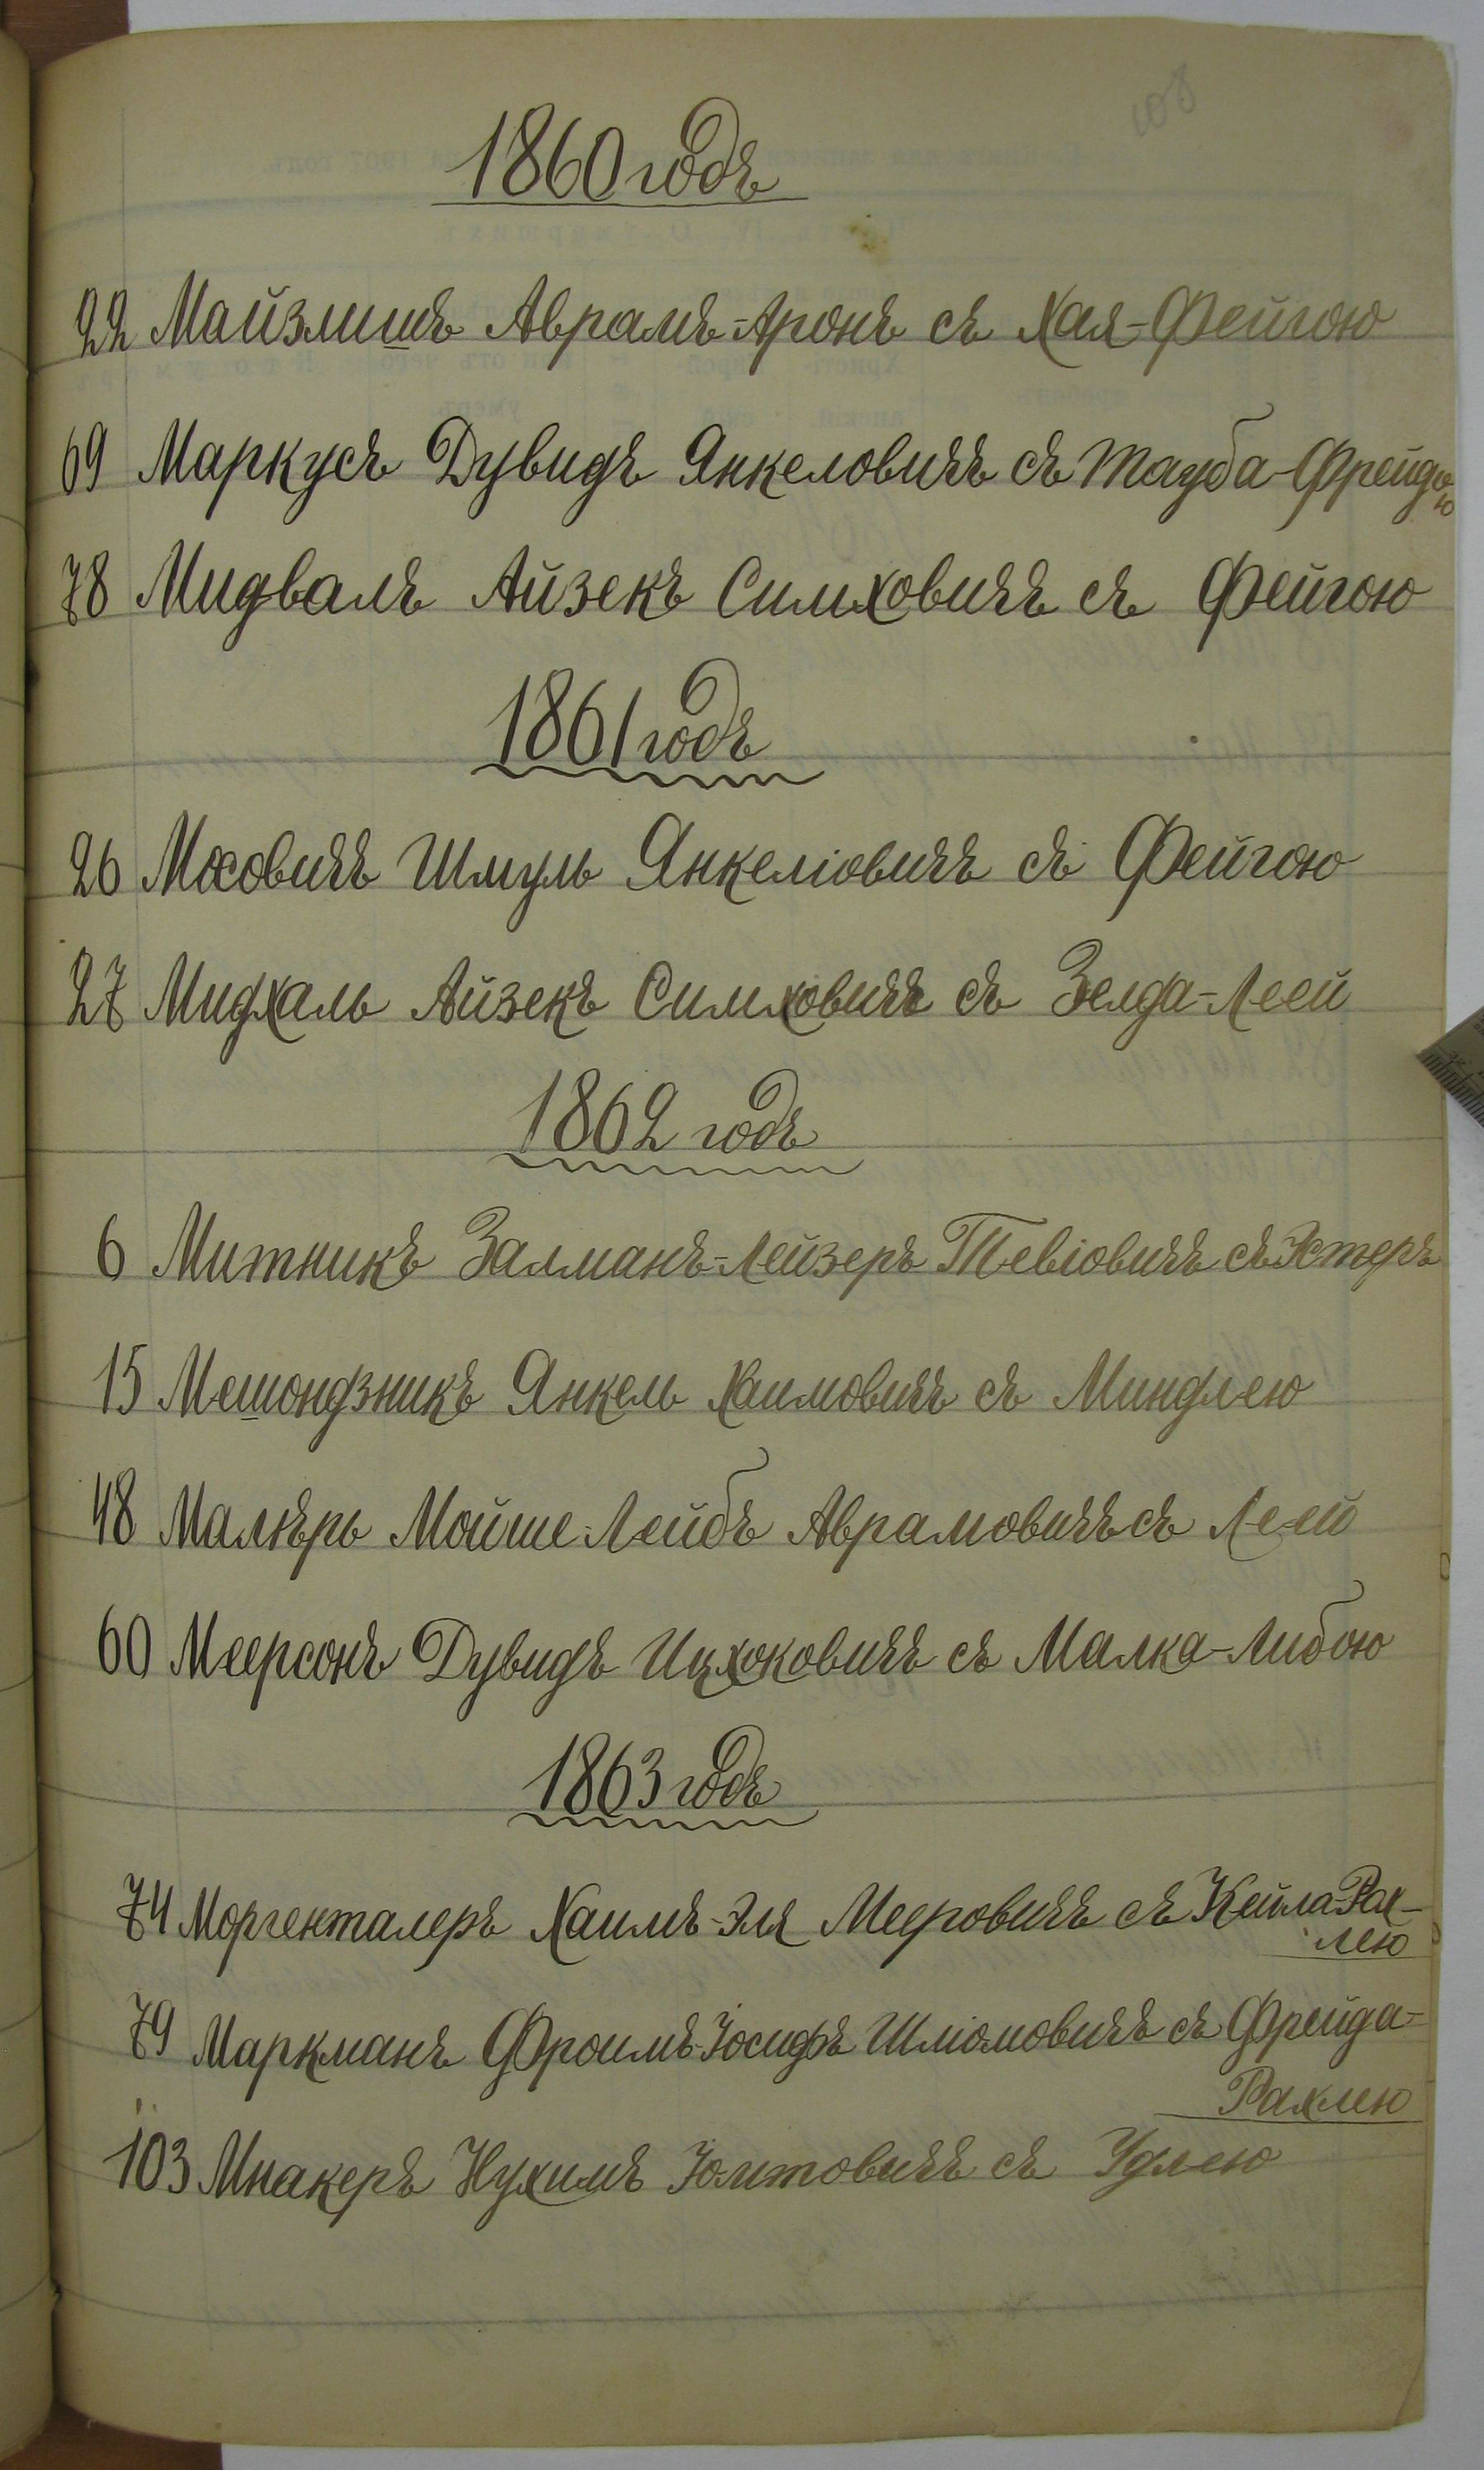 108
1860 годъ
22 Майзлишъ Аврамъ-Аронъ съ Хая-Фейгою
69 Маркусъ Дувидъ Янкеловичъ съ Тауба-Фрейдою
78 Мидвалъ Айзекъ Симховичъ съ Фейгою
1861 годъ
26 Мосовичъ Шмуль Янкеліовичъ съ Фейгою
27 Мидхаль Айзекъ Симховичъ съ Зелда-Леей
1862 годъ
6 Митникъ Залманъ-Лейзеръ Тевіовичъ съ Эстеръ
15 Мешондзникъ Янкель Хаимовичъ съ Миндлею
48 Малѣръ Мойше-Лейбъ Аврамовичъ съ Леей
60 Меерсонъ Дувидъ Ицхоковичъ съ Малка-Либою
1863 годъ
74 Моргенталеръ Хаимъ-Эля Мееровичъ съ Кейла-Рах-
лею
79 Маркманъ Фроимъ-Іосифъ Шліомовичъ съ Фрейда-
Рахлею
103 Мнакеръ Нухимъ Іомтовичъ съ Удлею